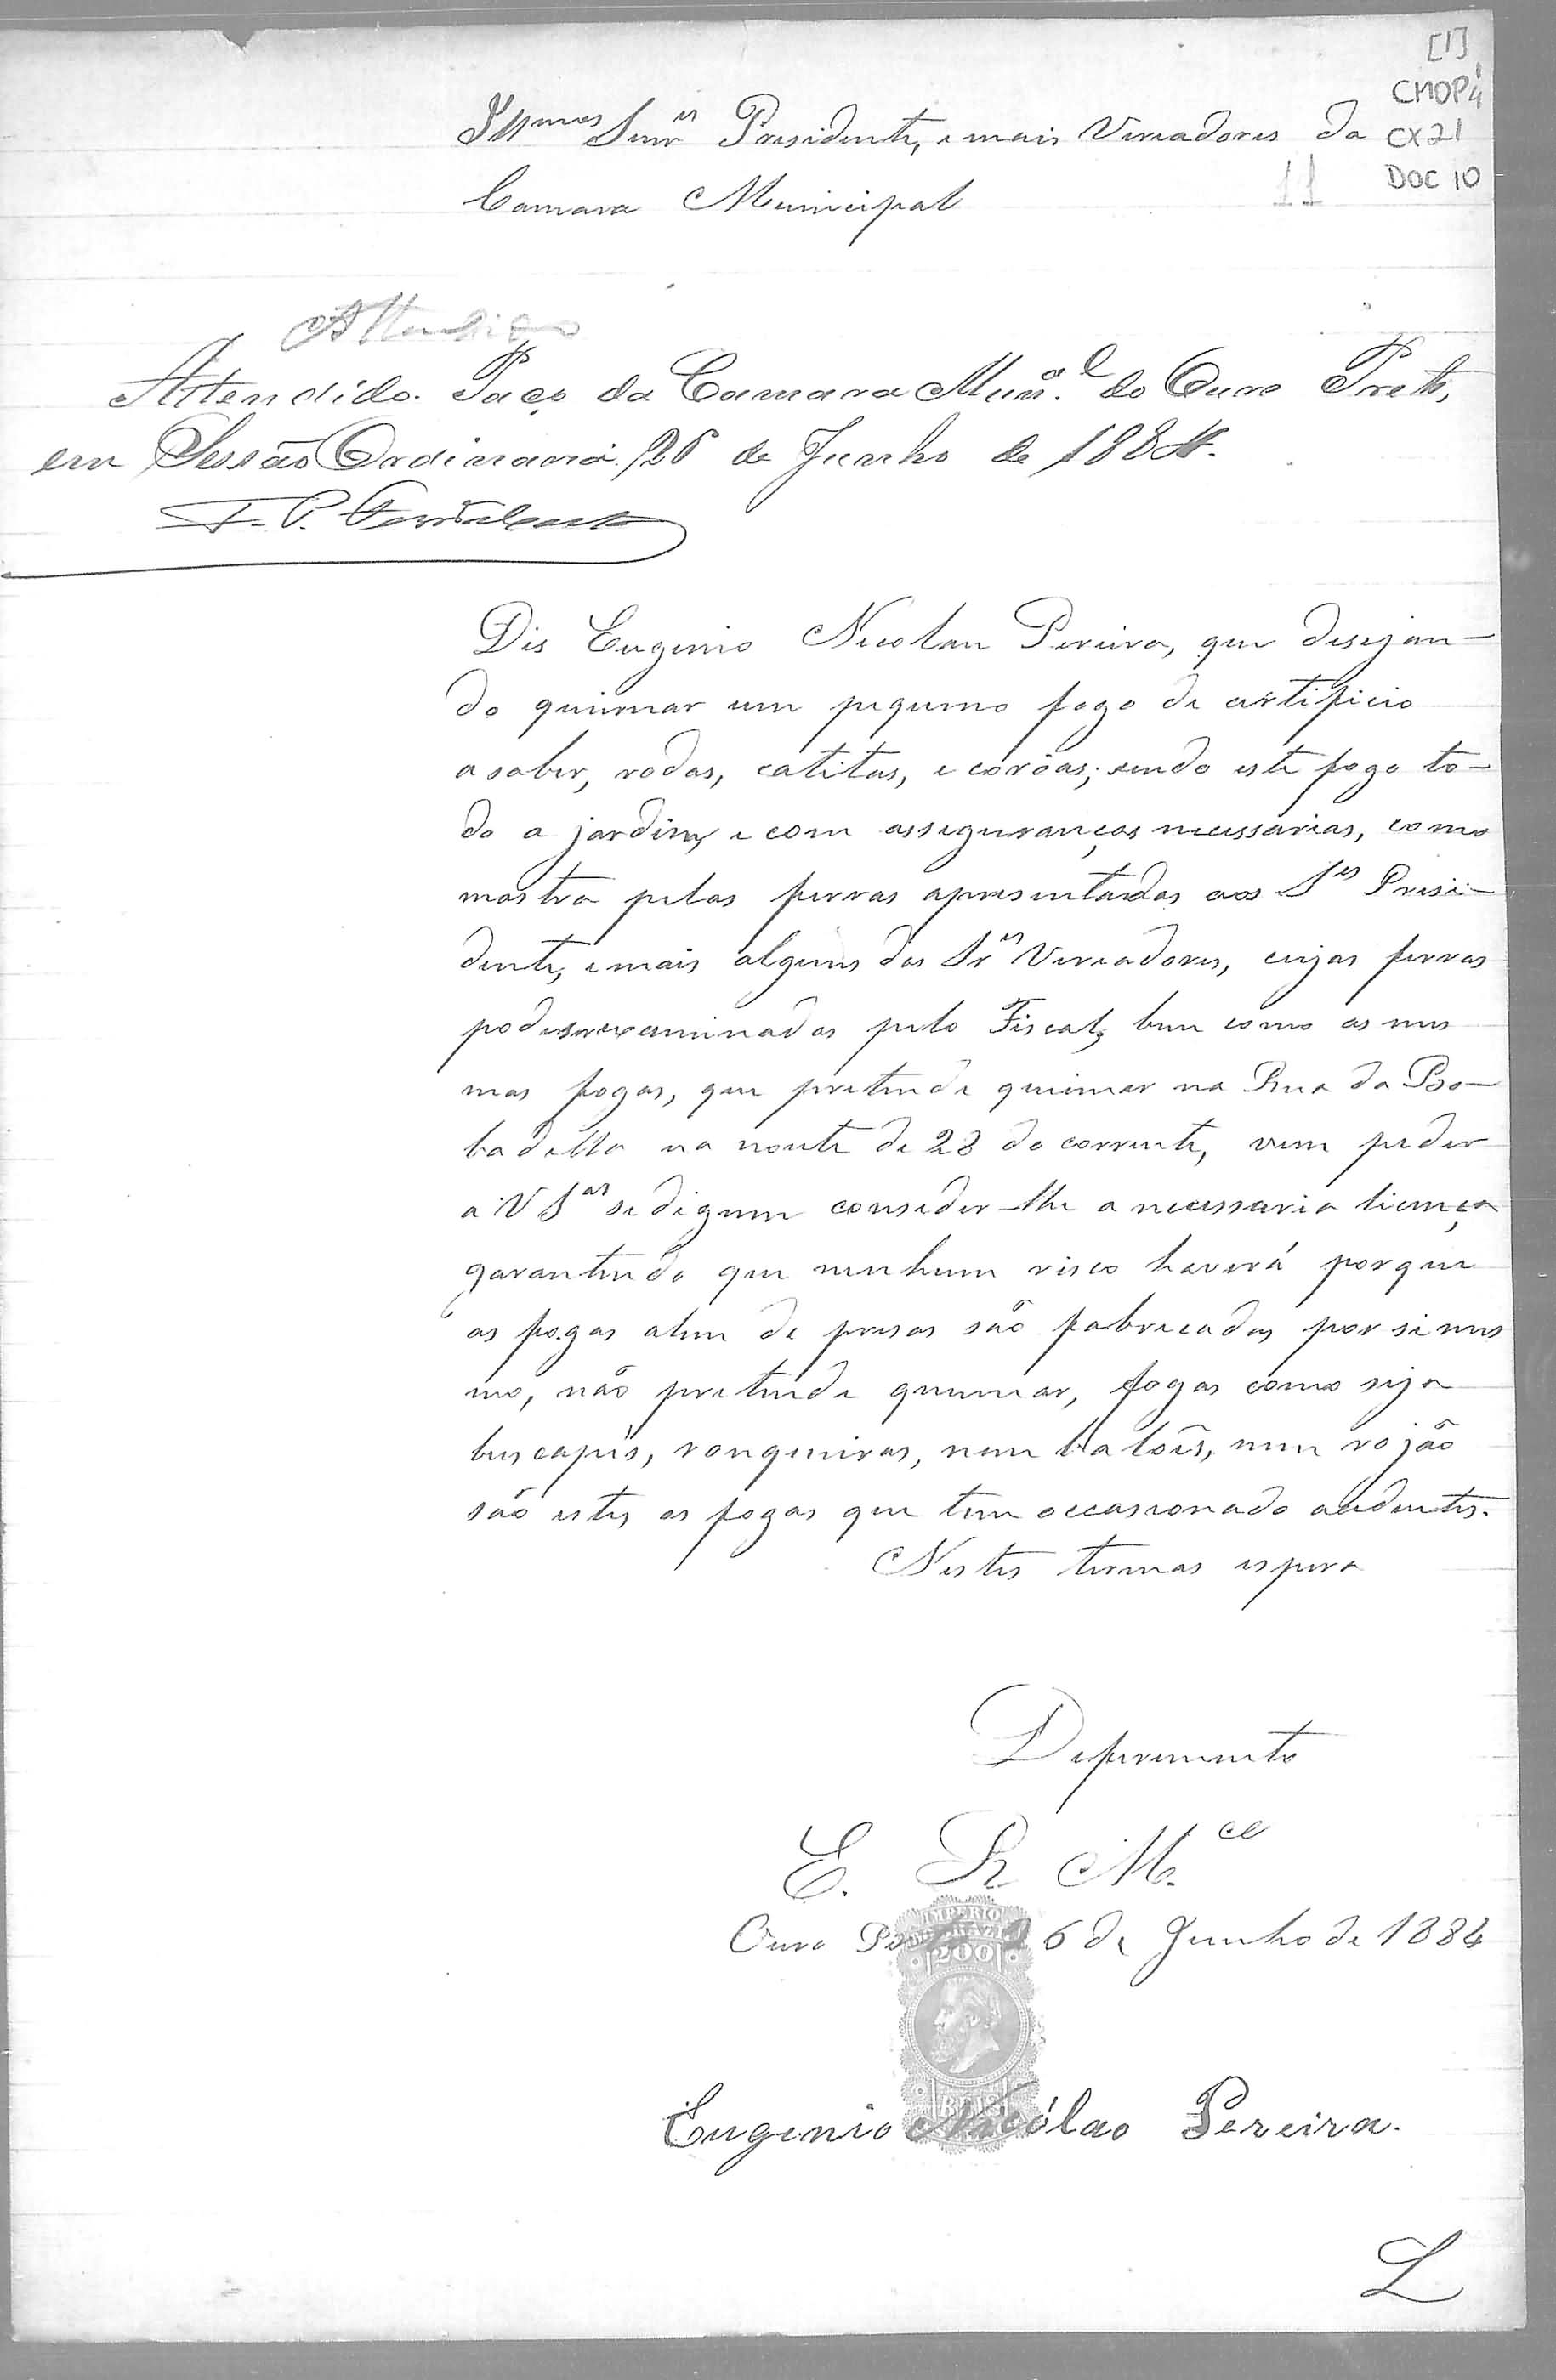 [1]
CMOP
CX 21
DOC 10
11
Illmos Senres Presidente, e mais Vereadores da
Camara Municipal
Attendido
Attendido. Paço da Camara Munal do Ouro Preto,
em Sessão Ordinaria 26 de Junho de 1884.
Dis Eugenio Nicolau Pereira, que desejan-
do queimar um pequeno fogo de artificio
a saber, rodas, catitas, e corôas; sendo este fogo to-
do a jardim, e com asseguranças necessarias, como
mostra pelas ferras apresentadas aos Sres Presi-
dente, e mais alguns dos Sres Vereadores, cujas ferras
pode ser examinadas pelo Fiscal, bem como os mes
mos fogos, que pretende queimar na Rua da Bo-
badella na noute de 28 do corrente, vem peder
a V Sas se digum conseder-lhe a necessaria licença
garantindo que nenhum risco haverá porque
os fogos alem de presos são fabricados por si mes
mo, não pretende queimar, fogos como seja
buscapés, ronqueiras, nem balões, nem rojão
são estes os fogos que tem occasionado acidentes.
Nestes termos espera
Deferimento
E. R. M.ce
Ouro Preto 26 de Junho de 1884
IMPERIO
DO BRAZIL
200
REIS
Eugenio Nicólao Pereira.